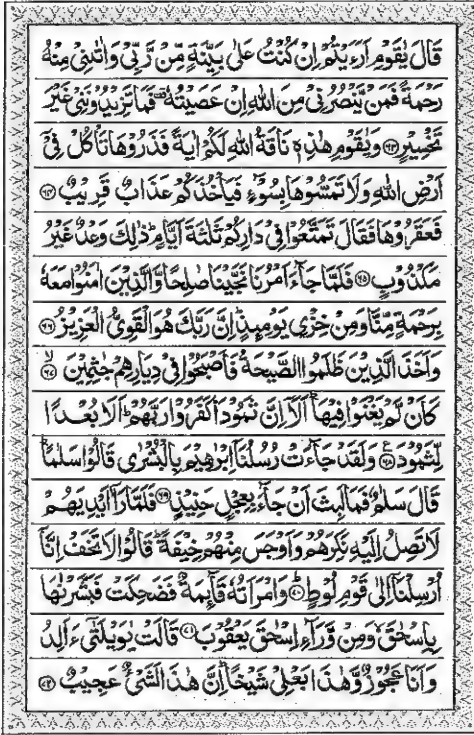 قَالَ يٰقَوْمِ اَرَءَيْتُمْ اِنْ كُنْتُ عَلٰى بَيِّنَةٍ مِّنْ رَّبِّىْ وَاٰتٰىنِىْ مِنْهُ
رَحْمَةً فَمَنْ يَّنْصُرُنِىْ مِنَ اللّٰهِ اِنْ عَصَيْتُهٗ فَمَا تَزِيْدُوْنَنِىْ غَيْرَ
تَخْسِيْرٍ ۝۶۳ وَيٰقَوْمِ هٰذِهٖ نَاقَةُ اللّٰهِ لَكُمْ اٰيَةً فَذَرُوْهَا تَاْكُلْ فِىْ
اَرْضِ اللّٰهِ وَلَا تَمَسُّوْهَا بِسُوْٓءٍ فَيَاْخُذَكُمْ عَذَابٌ قَرِيْبٌ ۝۶۴
فَعَقَرُوْهَا فَقَالَ تَمَتَّعُوْا فِىْ دَارِكُمْ ثَلٰثَةَ اَيَّامٍ ؕ ذٰلِكَ وَعْدٌ غَيْرُ
مَكْذُوْبٍ ۝۶۵ فَلَمَّا جَآءَ اَمْرُنَا نَجَّيْنَا صٰلِحًا وَّالَّذِيْنَ اٰمَنُوْا مَعَهٗ
بِرَحْمَةٍ مِّنَّا وَمِنْ خِزْىِ يَوْمِئِذٍ ؕ اِنَّ رَبَّكَ هُوَ الْقَوِىُّ الْعَزِيْزُ ۝۶۶
وَاَخَذَ الَّذِيْنَ ظَلَمُوا الصَّيْحَةُ فَاَصْبَحُوْا فِىْ دِيَارِهِمْ جٰثِمِيْنَ ۝۶۷ ۙ
كَاَنْ لَّمْ يَغْنَوْا فِيْهَا ؕ اَلَاۤ اِنَّ ثَمُوْدَا۟ كَفَرُوْا رَبَّهُمْ ؕ اَلَا بُعْدًا
لِّثَمُوْدَ ۝۶۸ وَلَقَدْ جَآءَتْ رُسُلُنَاۤ اِبْرٰهِيْمَ بِالْبُشْرٰى قَالُوْا سَلٰمًا ؕ
قَالَ سَلٰمٌ فَمَا لَبِثَ اَنْ جَآءَ بِعِجْلٍ حَنِيْذٍ ۝۶۹ فَلَمَّا رَاٰۤ اَيْدِيَهُمْ
لَا تَصِلُ اِلَيْهِ نَكِرَهُمْ وَاَوْجَسَ مِنْهُمْ خِيْفَةً ؕ قَالُوْا لَا تَخَفْ اِنَّاۤ
اُرْسِلْنَاۤ اِلٰى قَوْمِ لُوْطٍ ۝۷۰ ؕ وَامْرَاَتُهٗ قَآئِمَةٌ فَضَحِكَتْ فَبَشَّرْنٰهَا
بِاِسْحٰقَ ۙ وَمِنْ وَّرَآءِ اِسْحٰقَ يَعْقُوْبَ ۝۷۱ قَالَتْ يٰوَيْلَتٰٓى ءَاَلِدُ
وَاَنَا عَجُوْزٌ وَّهٰذَا بَعْلِىْ شَيْخًا ؕ اِنَّ هٰذَا لَشَىْءٌ عَجِيْبٌ ۝۷۲